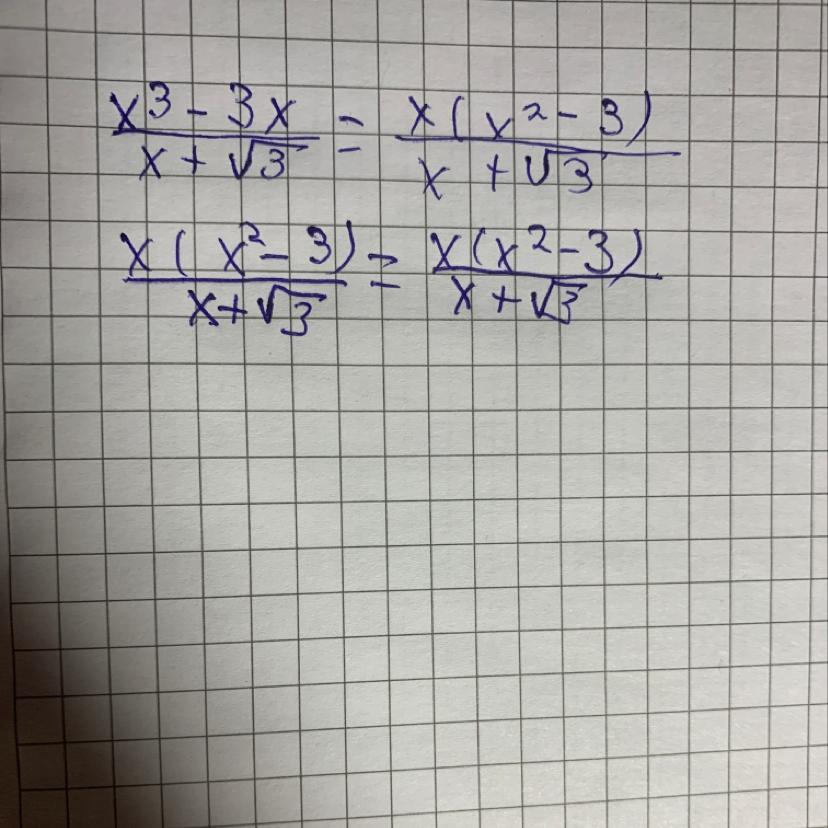 x³ - 3x / x + √3 = x(x² - 3) / x + √3
x(x² - 3) / x + √3 = x(x² - 3) / x + √3